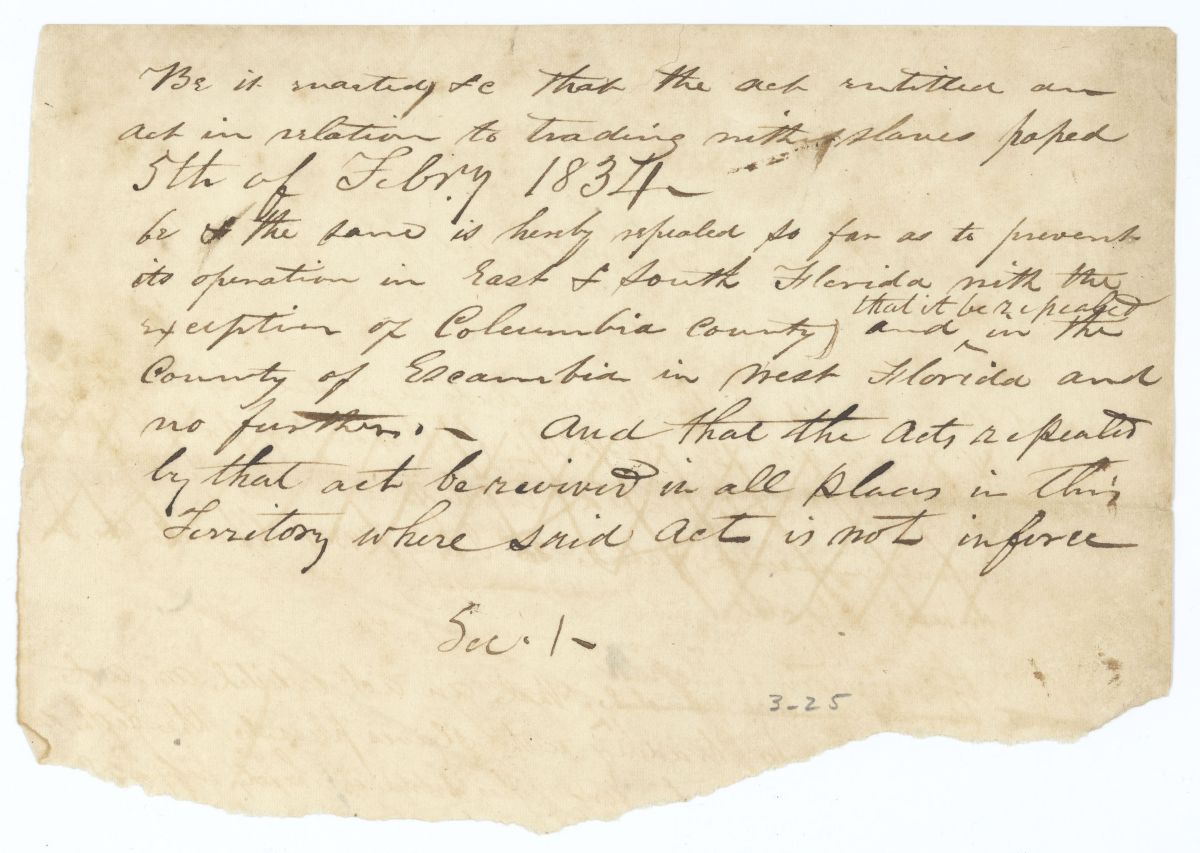 Be it enacted, &c that the act entitled an
act in relation to trading with slaves passed
5th of Febry 1834
be & the same is hereby repealed so far as to prevent
its operation in East & South Florida with the
that it be repealed
exception of Columbia County) and ^ in the
County of Escambia in West Florida and
no further. - And that the Acts repealed
by that act be revived in all places in this
Territory where said Act is not in force
Sec. 1-
3-25